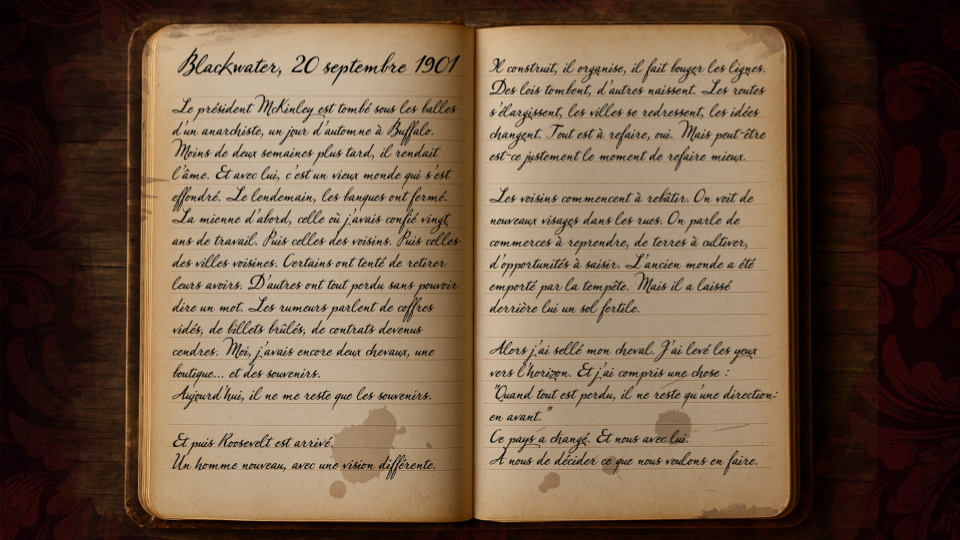 Blackwater, 20 septembre 1901
Le président McKinley est tombé sous les balles
d'un anarchiste, un jour d'automne à Buffalo.
Moins de deux semaines plus tard, il rendait
l'âme. Et avec lui, c'est un vieux monde qui s'est
effondré. Le lendemain, les banques ont fermé.
La mienne d'abord, celle où j'avais confié vingt
ans de travail. Puis celles des voisins. Puis celles
des villes voisines. Certains ont tenté de retirer
leurs avoirs. D'autres ont tout perdu sans pouvoir
dire un mot. Les rumeurs parlent de coffres
vidés, de billets brûlés, de contrats devenus
cendres. Moi, j'avais encore deux chevaux, une
boutique... et des souvenirs.
Aujourd'hui, il ne me reste que les souvenirs.
Et puis Roosevelt est arrivé.
Un homme nouveau, avec une vision différente.
Il construit, il organise, il fait bouger les lignes.
Des lois tombent, d'autres naissent. Les routes
s'élargissent, les villes se redressent, les idées
changent. Tout est à refaire, oui. Mais peut-être
est-ce justement le moment de refaire mieux.
Les voisins commencent à rebâtir. On voit de
nouveaux visages dans les rues. On parle de
commerces à reprendre, de terres à cultiver,
d'opportunités à saisir. L'ancien monde a été
emporté par la tempête. Mais il a laissé
derrière lui un sol fertile.
Alors j'ai sellé mon cheval. J'ai levé les yeux
vers l'horizon. Et j'ai compris une chose :
"Quand tout est perdu, il ne reste qu'une direction:
en avant."
Ce pays a changé. Et nous avec lui.
A nous de décider ce que nous voulons en faire.